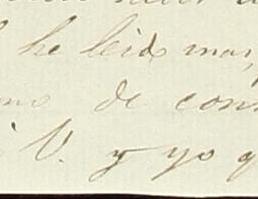 he leido mas,
de con
V. y yo q